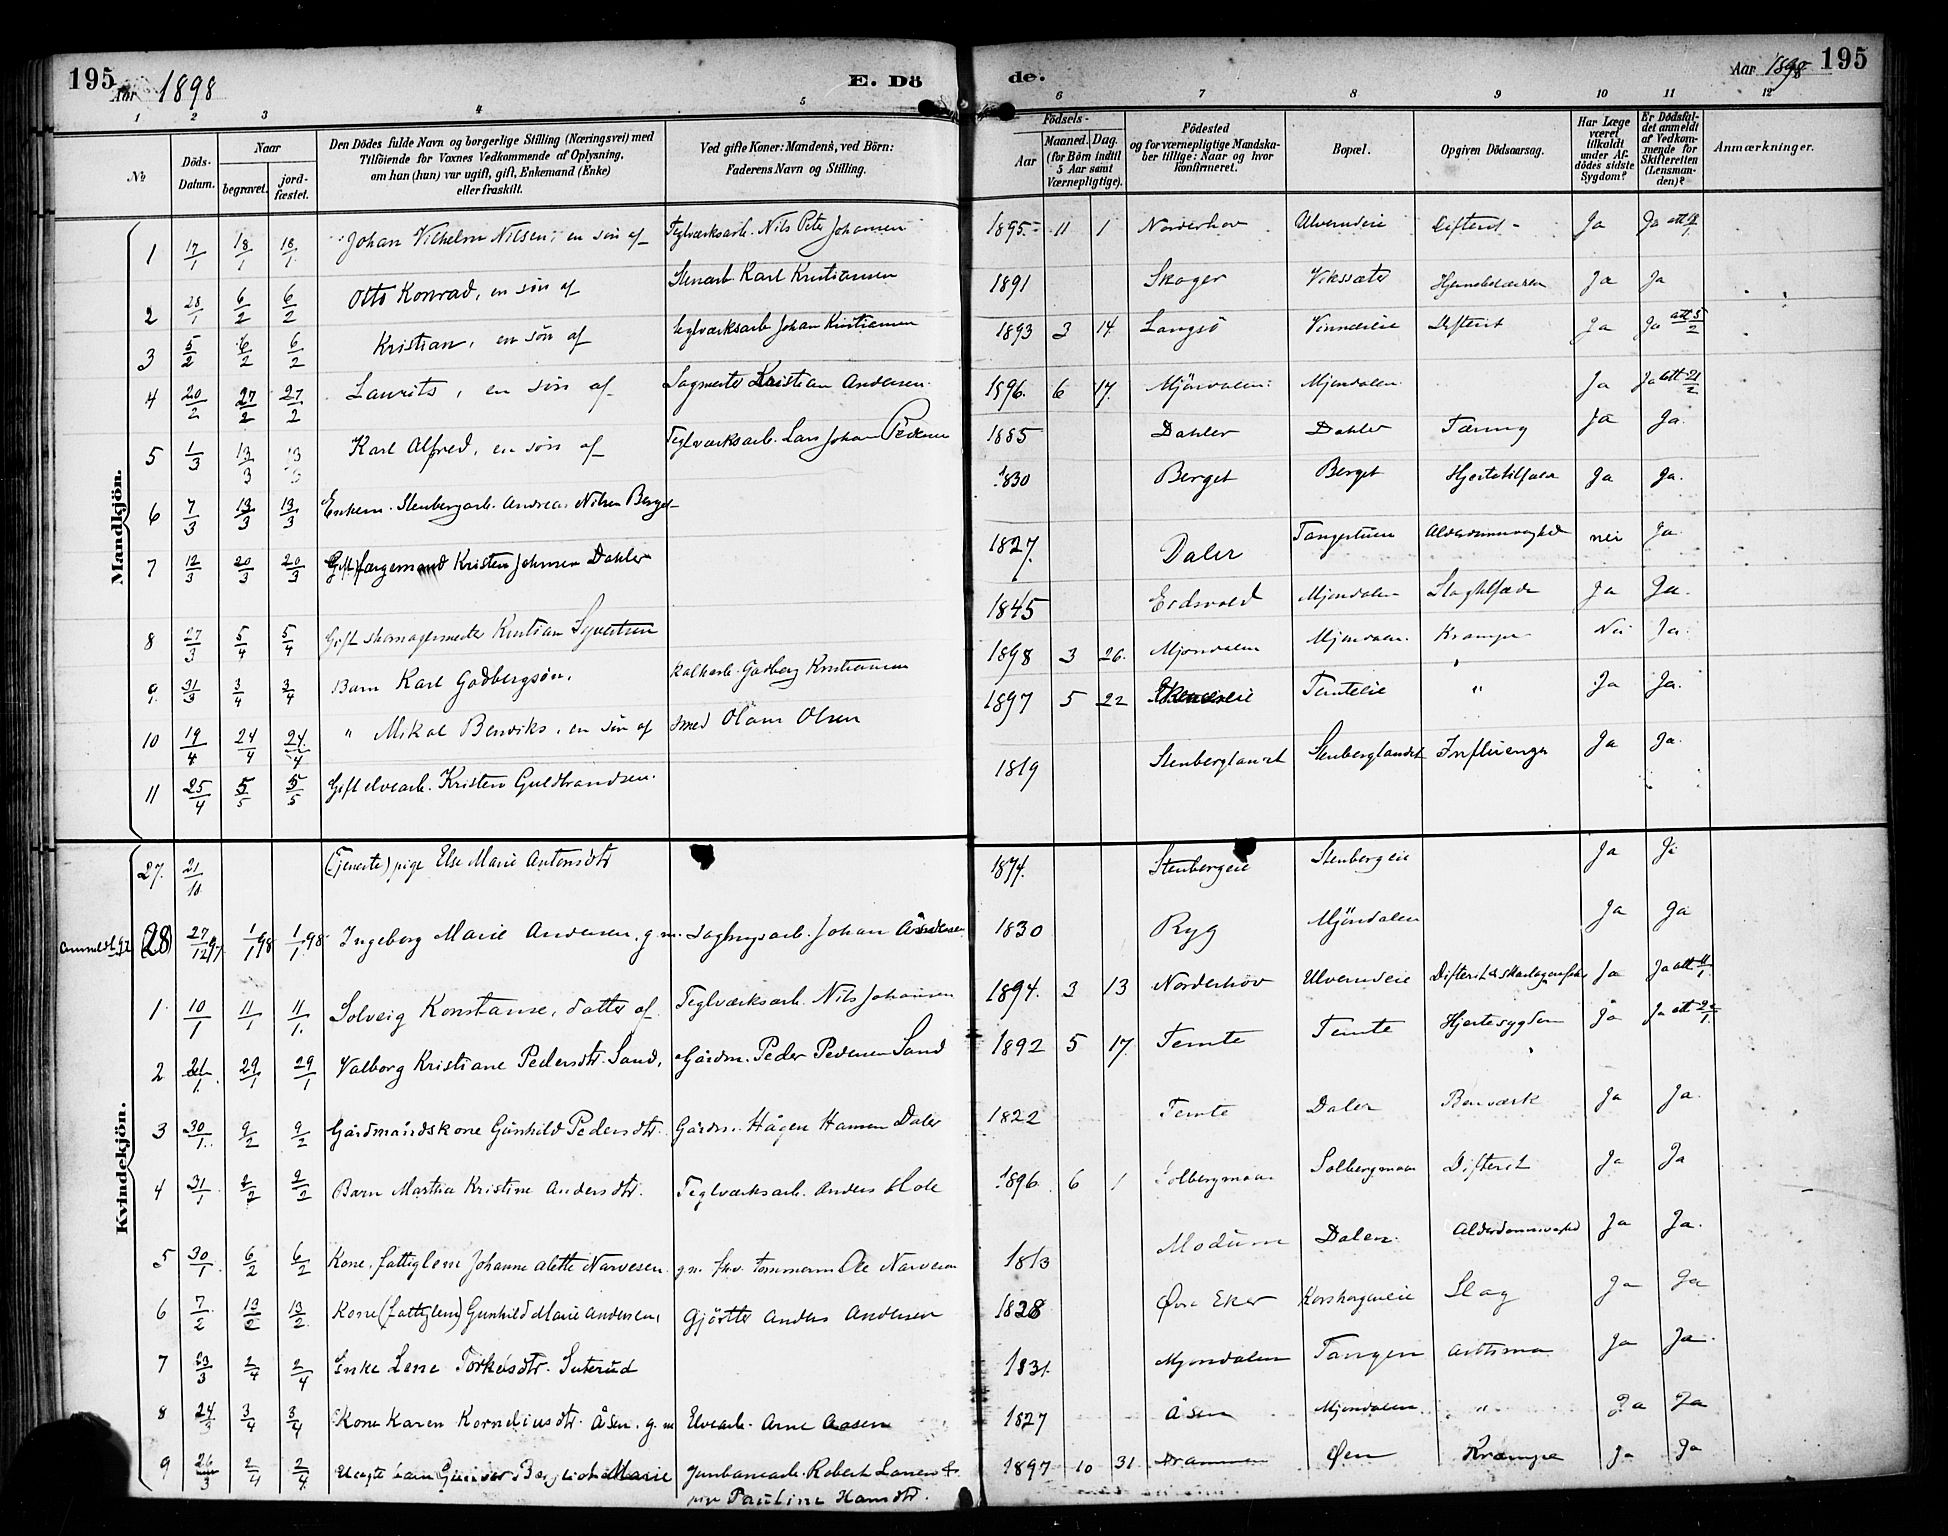 195 Aar 1898 E. Dö de. Aar 1898 195
1 2 3 4 5 6 7 8 9 10 11 12
№ Döds-Datum. Naar begravet. jordfæstet. Den Dödes fulde Navn og borgerlige Stilling (Næringsvei) med Tilföiende for Voxnes Vedkommende af Oplysning, om han (hun) var ugift, gift, Enkemand (Enke) eller fraskilt. Ved gifte Koner: Mandens, ved Börn: Faderens Navn og Stilling. Födsels- Aar Maaned. Dag. (for Börn indtil 5 Aar samt Værnepligtige). Födested og for værnepligtige Mandskaber tillige: Naar og hvor konfirmeret. Bopæl. Opgiven Dödsaarsag. Har Læge været tilkaldt under Afdödes sidste Sygdom? Er Dödsfaldet anmeldt af Vedkommende for Skifteretten (Lensmanden)? Anmærkninger.
Mandkjön.
1 17/1 18/1 18/1 Johan Vilhelm Nilsen, en søn af Teglværksarb. Nils Peter Johansen 1895 11 1 Norderhov Ulverudeie Difterit Ja Ja att 18/1
2 28/1 6/2 6/2 Otto Konrad, en søn af Stenarb. Karl Kristiansen 1891 Skoger Vikssæter Ja Ja
3 5/2 6/2 6/2 Kristian, en søn af Teglværksarb. Johan Kristiansen 1893 3 14 Langsö Difterit Ja Ja att 5/2
4 20/2 27/2 27/2 Laurits, en søn af Sagmester Kristian Andersen. 1896. 6 17. Mjöndalen Mjondalen Ja Ja att 21/2
5 1/3 13/3 13/3 Karl Alfred, en søn af Teglværksarb. Lars Johan Pedersen 1885 Dahler Dahler Tæring Ja Ja.
6 7/3 13/3 13/3 Enkem. Stenbergarb. Andreas Nilsen Berget 1830 Berget Berget Hjertetilfæld Ja Ja.
7 12/3 20/3 20/3 Gift færgemand Kristen Johnsen Dahler 1827. Daler Alderdomssvaghed nei Ja.
8 27/3 5/4 5/4 Gift skomagermester Kristian Syvertsen 1845 Eidsvold Mjondalen Slagtilfælde Ja Ja.
9. 31/3 3/4 3/4 Barn Karl Godbergsøn. Kalkarb. Godberg Kristiansen 1898 3 26. Mjondalen Mjondalen. Krampe Nei Ja.
10 19/4 24/4 24/4 " Mikal Bendiks, en søn af smed Olaus Olsen 1897 5 22 Temteeie " Ja Ja.
11 25/4 5/5 5/5 Gift elvearb. Kristen Guldbrandsen. 1819 Stenberglandet Stenberglandet Influenza Ja Ja.
Kvindekjön.
27. 21/10 (Tjeneste) pige Else Marie Antonsdtr 1874. Stenbergeie Stenbergeie Ja Ja
(28) 27/12 97 1/1 98 1/1 98. Ingeborg Marie Andersen. g. m. Sagbrugsarb. Johan Andersen 1830 Ryg Mjöndalen Ja Ja
1. 10/1 11/1 11/1. Solveig Konstanse, datter af Teglværksarb. Nils Johansen 1894. 3 13 Norderhov Ulverudeie Difterit & skarlagensfeber Ja Ja att 11/1.
2 29/1 29/1 Valborg Kristiane Pedersdtr. Sand, Gårdm. Peder Pedersen Sand 1892 5 17. Temte Temte Hjertesygdom Ja Ja att
3 30/1. 9/2 9/2 Gårdmandskone Gunhild Pedersdtr. Gårdm. Hågen Hansen Daler 1822 Temte Daler Benværk Ja Ja.
4 31/1. 2/2 2/2 Barn Martha Kristine Andersdtr. Teglværksarb. Anders Hole 1896. 6 1 Solbergmoen Solbergmoen Difterit Ja Ja
5 30/1. 6/2 6/2 Kone. fattiglem Johanne Alette Narvesen. g. m. fhv. tømmerm. Ole Narvesen 1813 Modum Dalen. Alderdomssvaghed Ja Ja.
6 7/2. 13/2 13/2. Kone (Fattiglem) Gunhild Marie Andersen, Gjörtler Anders Andersen 1828 Øvre Eker Slag Ja Ja
7 23/3 2/4 2/4 Enke Lene Torkelsdtr. Suterud 1831. Mjondalen Tangen Asthma Ja Ja.
8 24/3 3/4 3/4 Kone Karen Korneliusdtr. Åsen. g. m Elvearb. Arne Aasen 1827 Åsen Mjondalen " Ja Ja
9 26/3 2/4 2/4. Uægte barn Marie Jernbanearb. Robert Larsen & pige Pauline Hansdtr. 1897 10 31. Drammen Øen Krampe Ja Ja